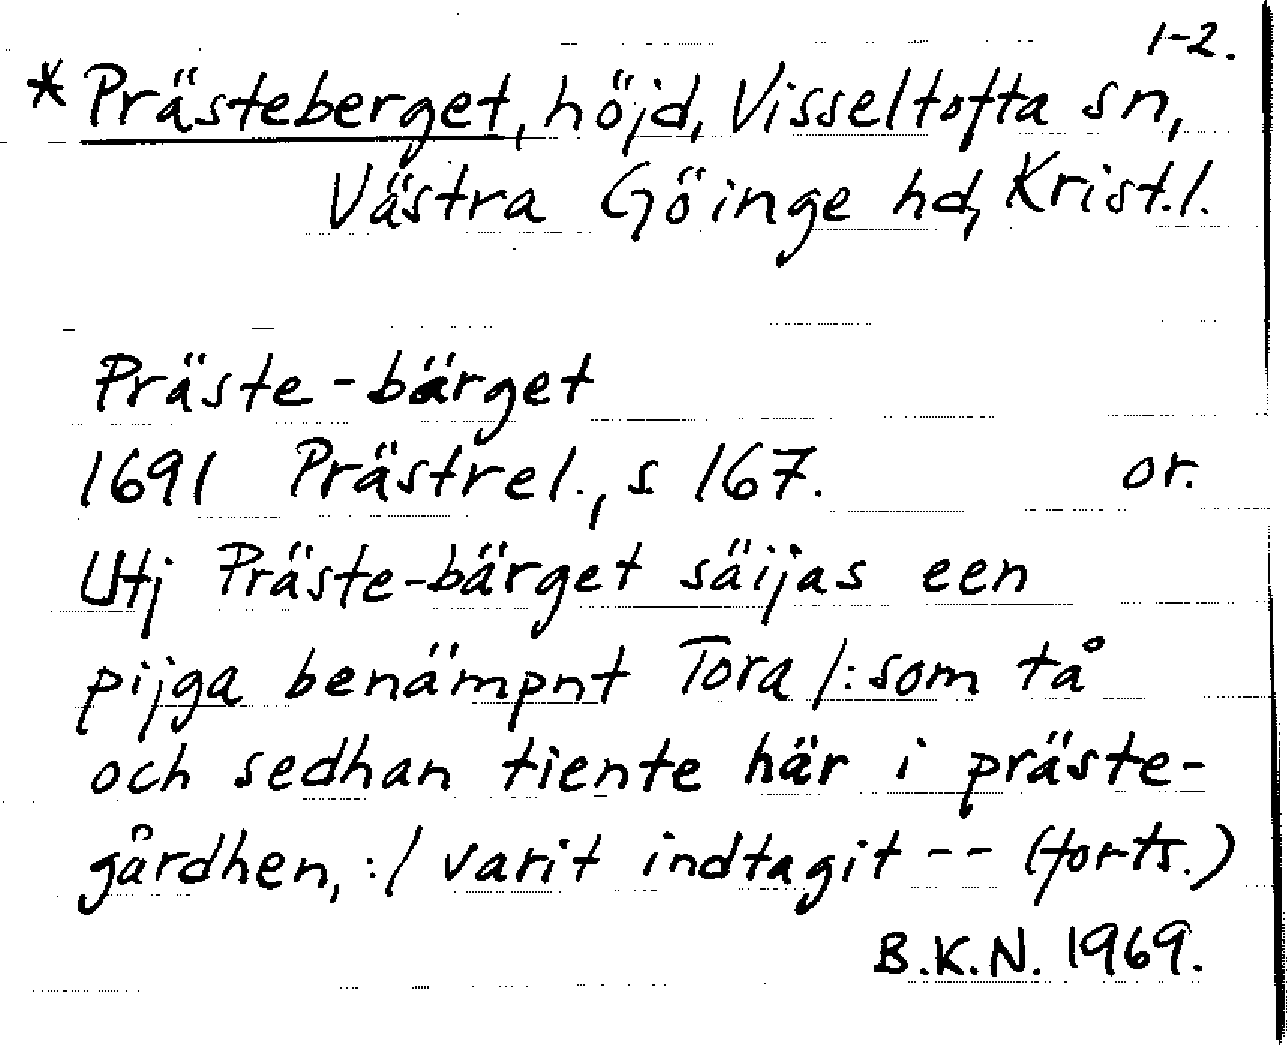 1-2.
*Prästeberget, höjd, Visseltofta sn,
Västra Göinge hd, Krist.l.
Präste-bärget
1691 Prästrel., s 167. or.
Utj Präste-bärget säijas een
pijga benämpnt Tora /: som tå
och sedhan tiente här i präste-
gårdhen, :/ varit indtagit -- (forts.)
B.K.N. 1969.